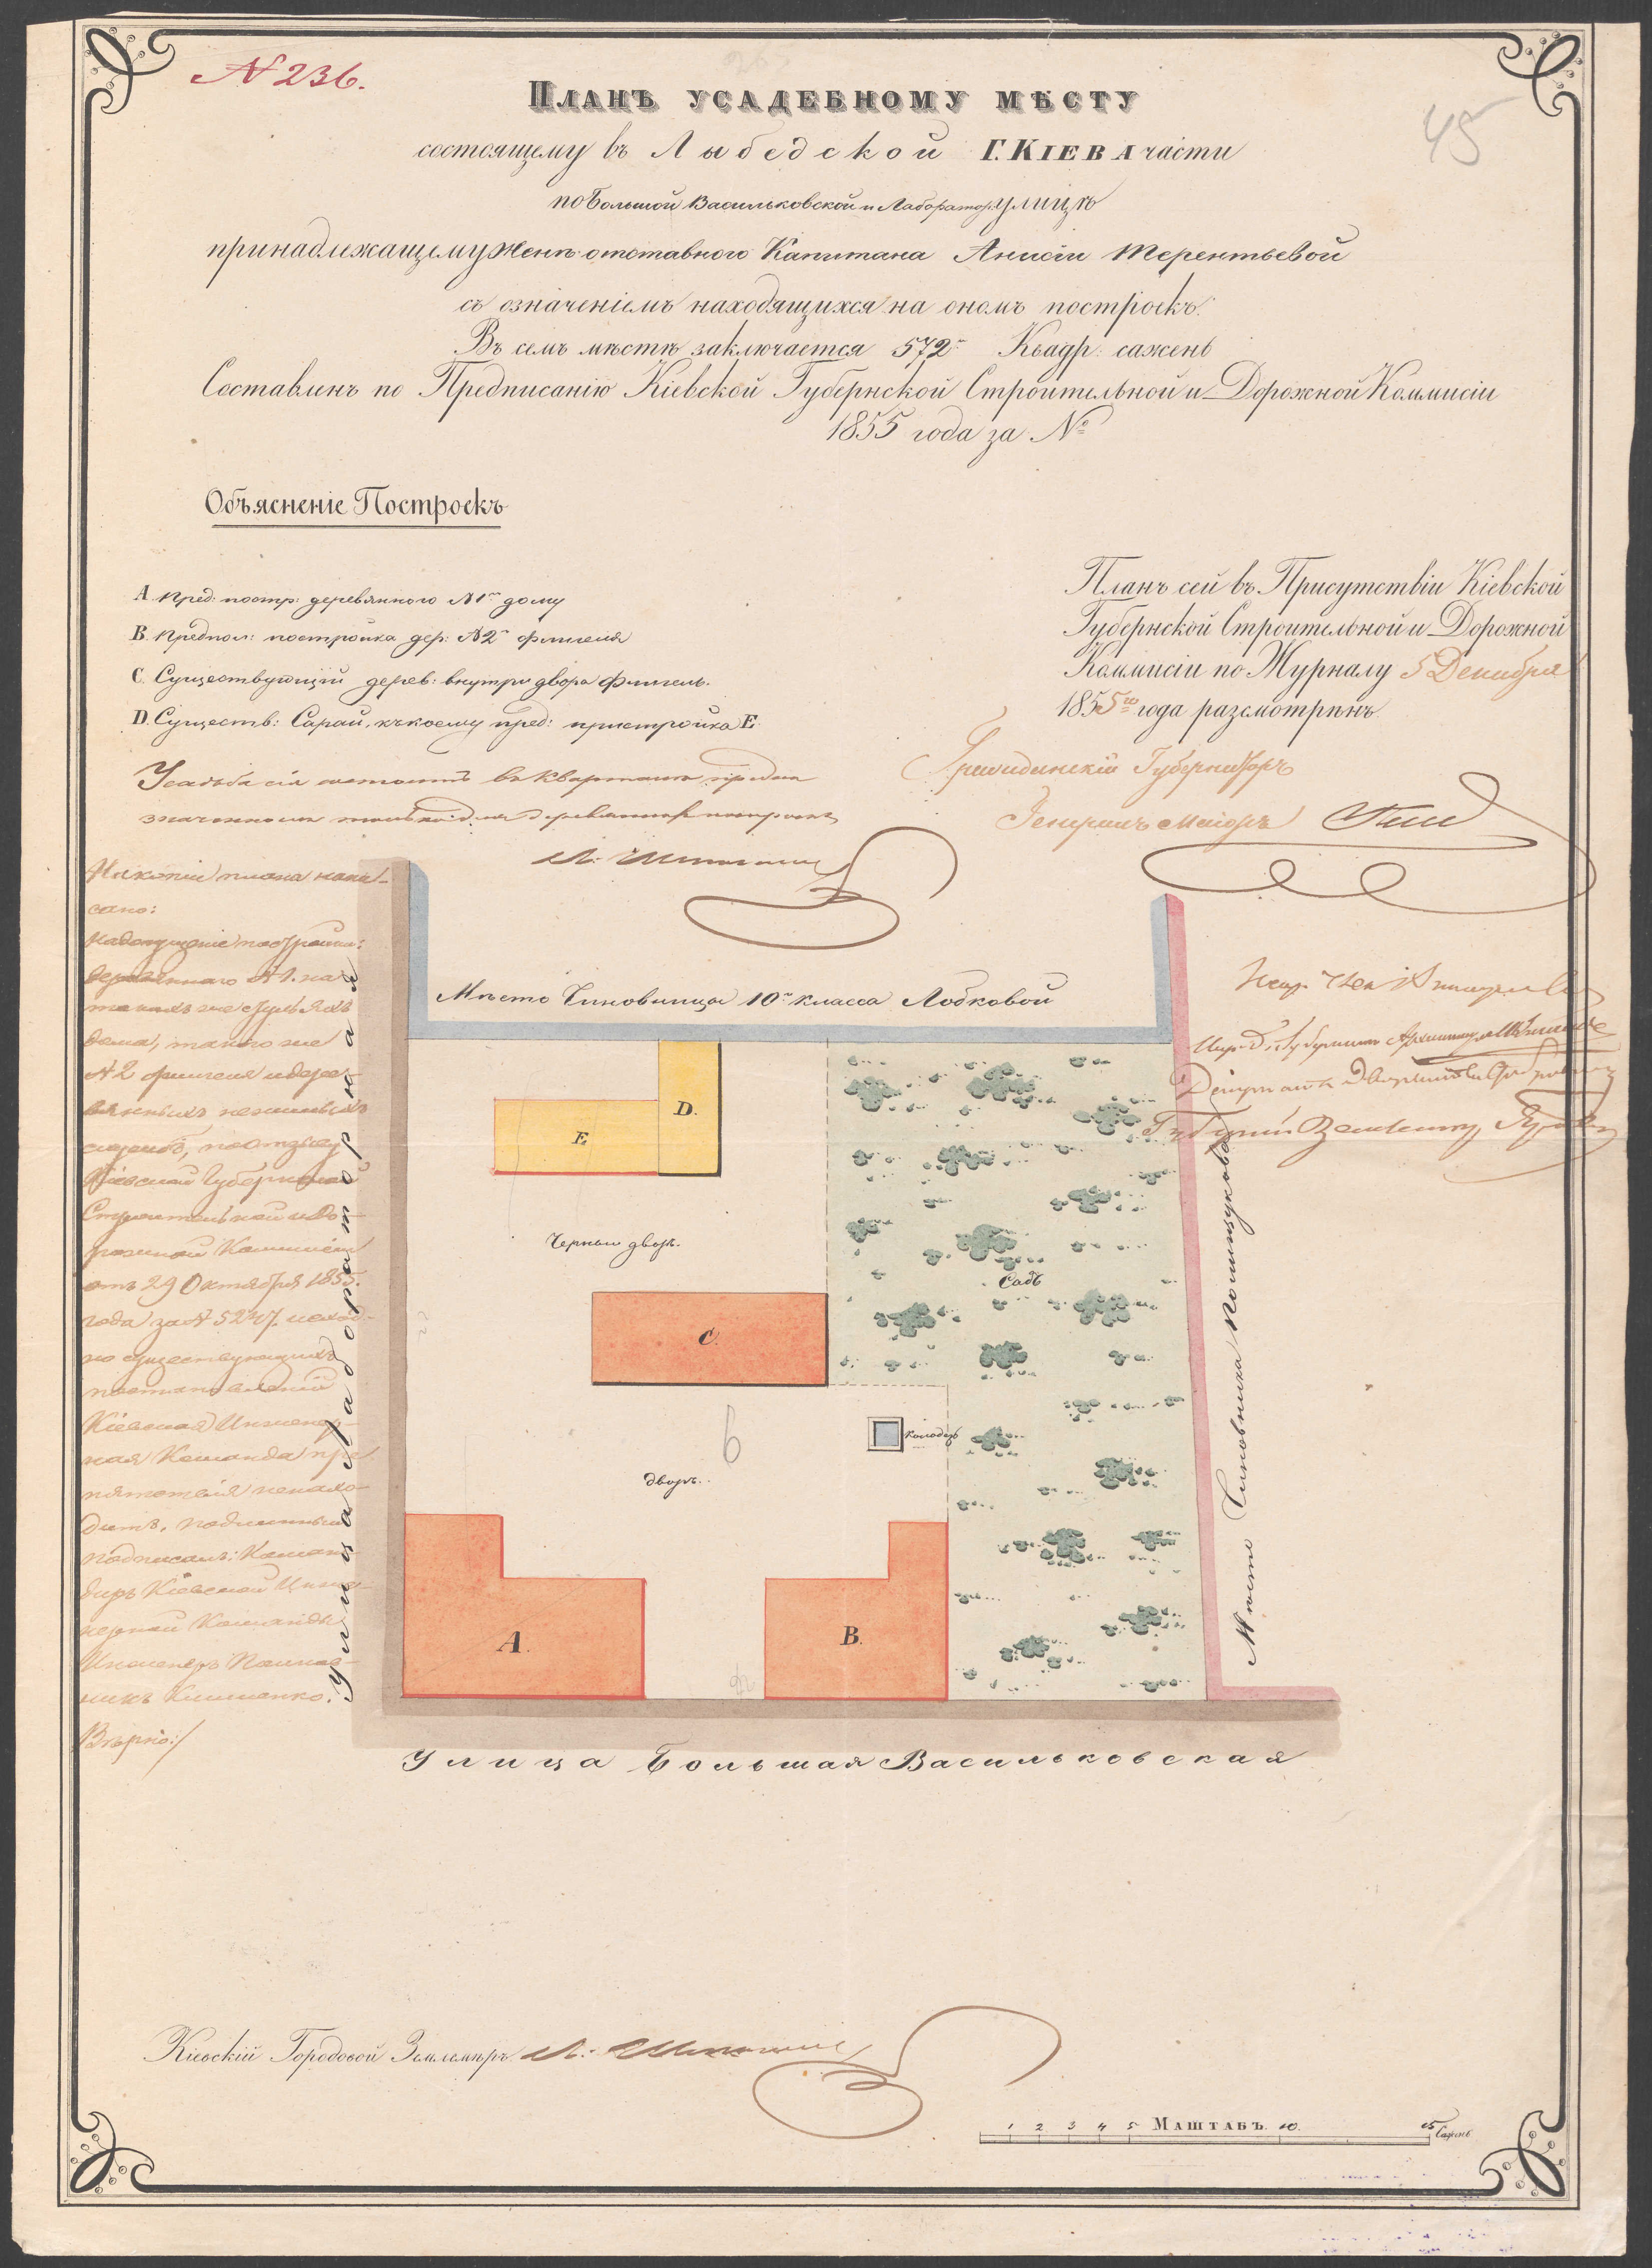 N 236.
45
Планъ усадебному мѣсту
состоящему въ Лыбедской Г. Кіева части
по Большой Васильковской и Лаборатор: улицѣ
принадлежащему женѣ отставного Капитана Анисіи Терентьевой
съ означеніемъ находящихся на ономъ построекъ.
Въ семъ мѣстѣ заключается 572 Квадр: сажень
Составленъ по Предписанію Кіевской Губернской Строительной и Дорожной Коммисіи
1855 года за №
Объясненіе Построекъ
A. пред: постр: деревянного №1го дому
B. Предпол: постройка дер: №2го флигеля
C. Существующій дерев: внутри двора флигель.
D. Существ: Сарай, къ коему пред: пристройка E
Усадьба сія состоитъ въ Кварталѣ предна
значенномъ только для деревянныхъ построекъ
Планъ сей въ Присутствіи Кіевской
Губернской Строительной и Дорожной
Коммисіи по Журналу 5 Декабря
1855го года разсмотрѣнъ
Гражданскій Губернаторъ
Генералъ Маіоръ
На копіи плана напи-
сано:
На допущеніе постройки:
деревяннаго №1. на
дома, такого же
№2 флигеля и дере-
вянныхъ нежилыхъ
Кіевской Губернской
Строительной и До-
рожной Коммисіи
отъ 29 Октября 1855.
года за № 5247.
по существующимъ
Кіевская Инженер-
ная Команда пре
пятствія не нахо-
дитъ, подлинный
подписалъ: Коман-
диръ Кіевской Инже-
нерной Команды
Инженеръ Полков-
никъ
Вѣрно:/
Мѣсто Чиновницы 10го класса Лобковой
D.
E
Черный дворъ.
Садъ
C.
Колодезь
6
дворъ.
A.
B.
Улица Лабораторная
Мѣсто Чиновника Полищукова
Улица Большая Васильковская
Кіевскій Городовой Землемѣръ
1 2 3 4 5 Маштабъ. 10. 15 Сажень